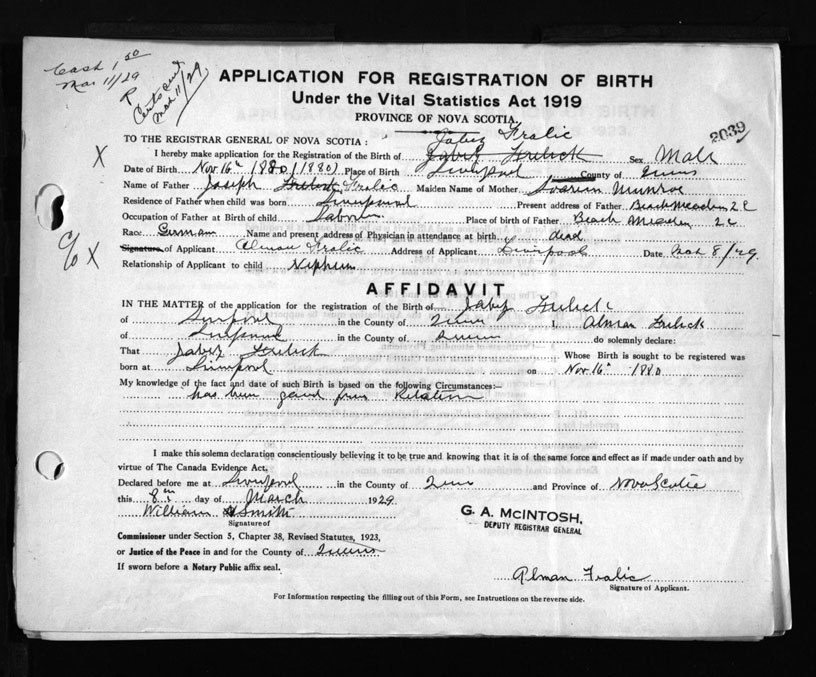 Cash 1 50
Mar 11/29
Cert sent
Mar 11/29
APPLICATION FOR REGISTRATION OF BIRTH
Under the Vital Statistics Act 1919
PROVINCE OF NOVA SCOTIA.
2039
Jabez Fralic
TO THE REGISTRAR GENERAL OF NOVA SCOTIA :
X I hereby make application for the Registration of the Birth of Jabez Frelick Sex Male
Date of Birth Nov 16th 1880 (1880) Place of Birth Liverpool County of Queens
Name of Father Joseph Frelick Fralic Maiden Name of Mother Munroe
Residence of Father when child was born Liverpool Present address of Father Beach Meadows
Occupation of Father at Birth of child Laborer Place of birth of Father Beach Meadows
Race German Name and present address of Physician in attendance at birth dead
% X Signature of Applicant Alman Fralic Address of Applicant Liverpool Date Mch 8/29.
Relationship of Applicant to child Nephew
AFFIDAVIT
IN THE MATTER of the application for the registration of the Birth of Jabez Frelick
of Liverpool in the County of Queens I, Alman Frelick
of Liverpool in the County of Queens do solemnly declare:
That Jabez Frelick Whose Birth is sought to be registered was
born at Liverpool on Nov 16th 1880
My knowledge of the fact and date of such Birth is based on the following Circumstances:—
has been from Relation
I make this solemn declaration conscientiously believing it to be true and knowing that it is of the same force and effect as if made under oath and by
virtue of The Canada Evidence Act.
Declared before me at Liverpool in the County of Queens and Province of Nova Scotia
this 8th day of March 1929
William Smith
Signature of
G. A. McINTOSH,
DEPUTY REGISTRAR GENERAL
Commissioner under Section 5, Chapter 38, Revised Statutes, 1923,
or Justice of the Peace in and for the County of Queens
If sworn before a Notary Public affix seal.
Alman Fralic
Signature of Applicant.
For Information respecting the filling out of this Form, see Instructions on the reverse side.